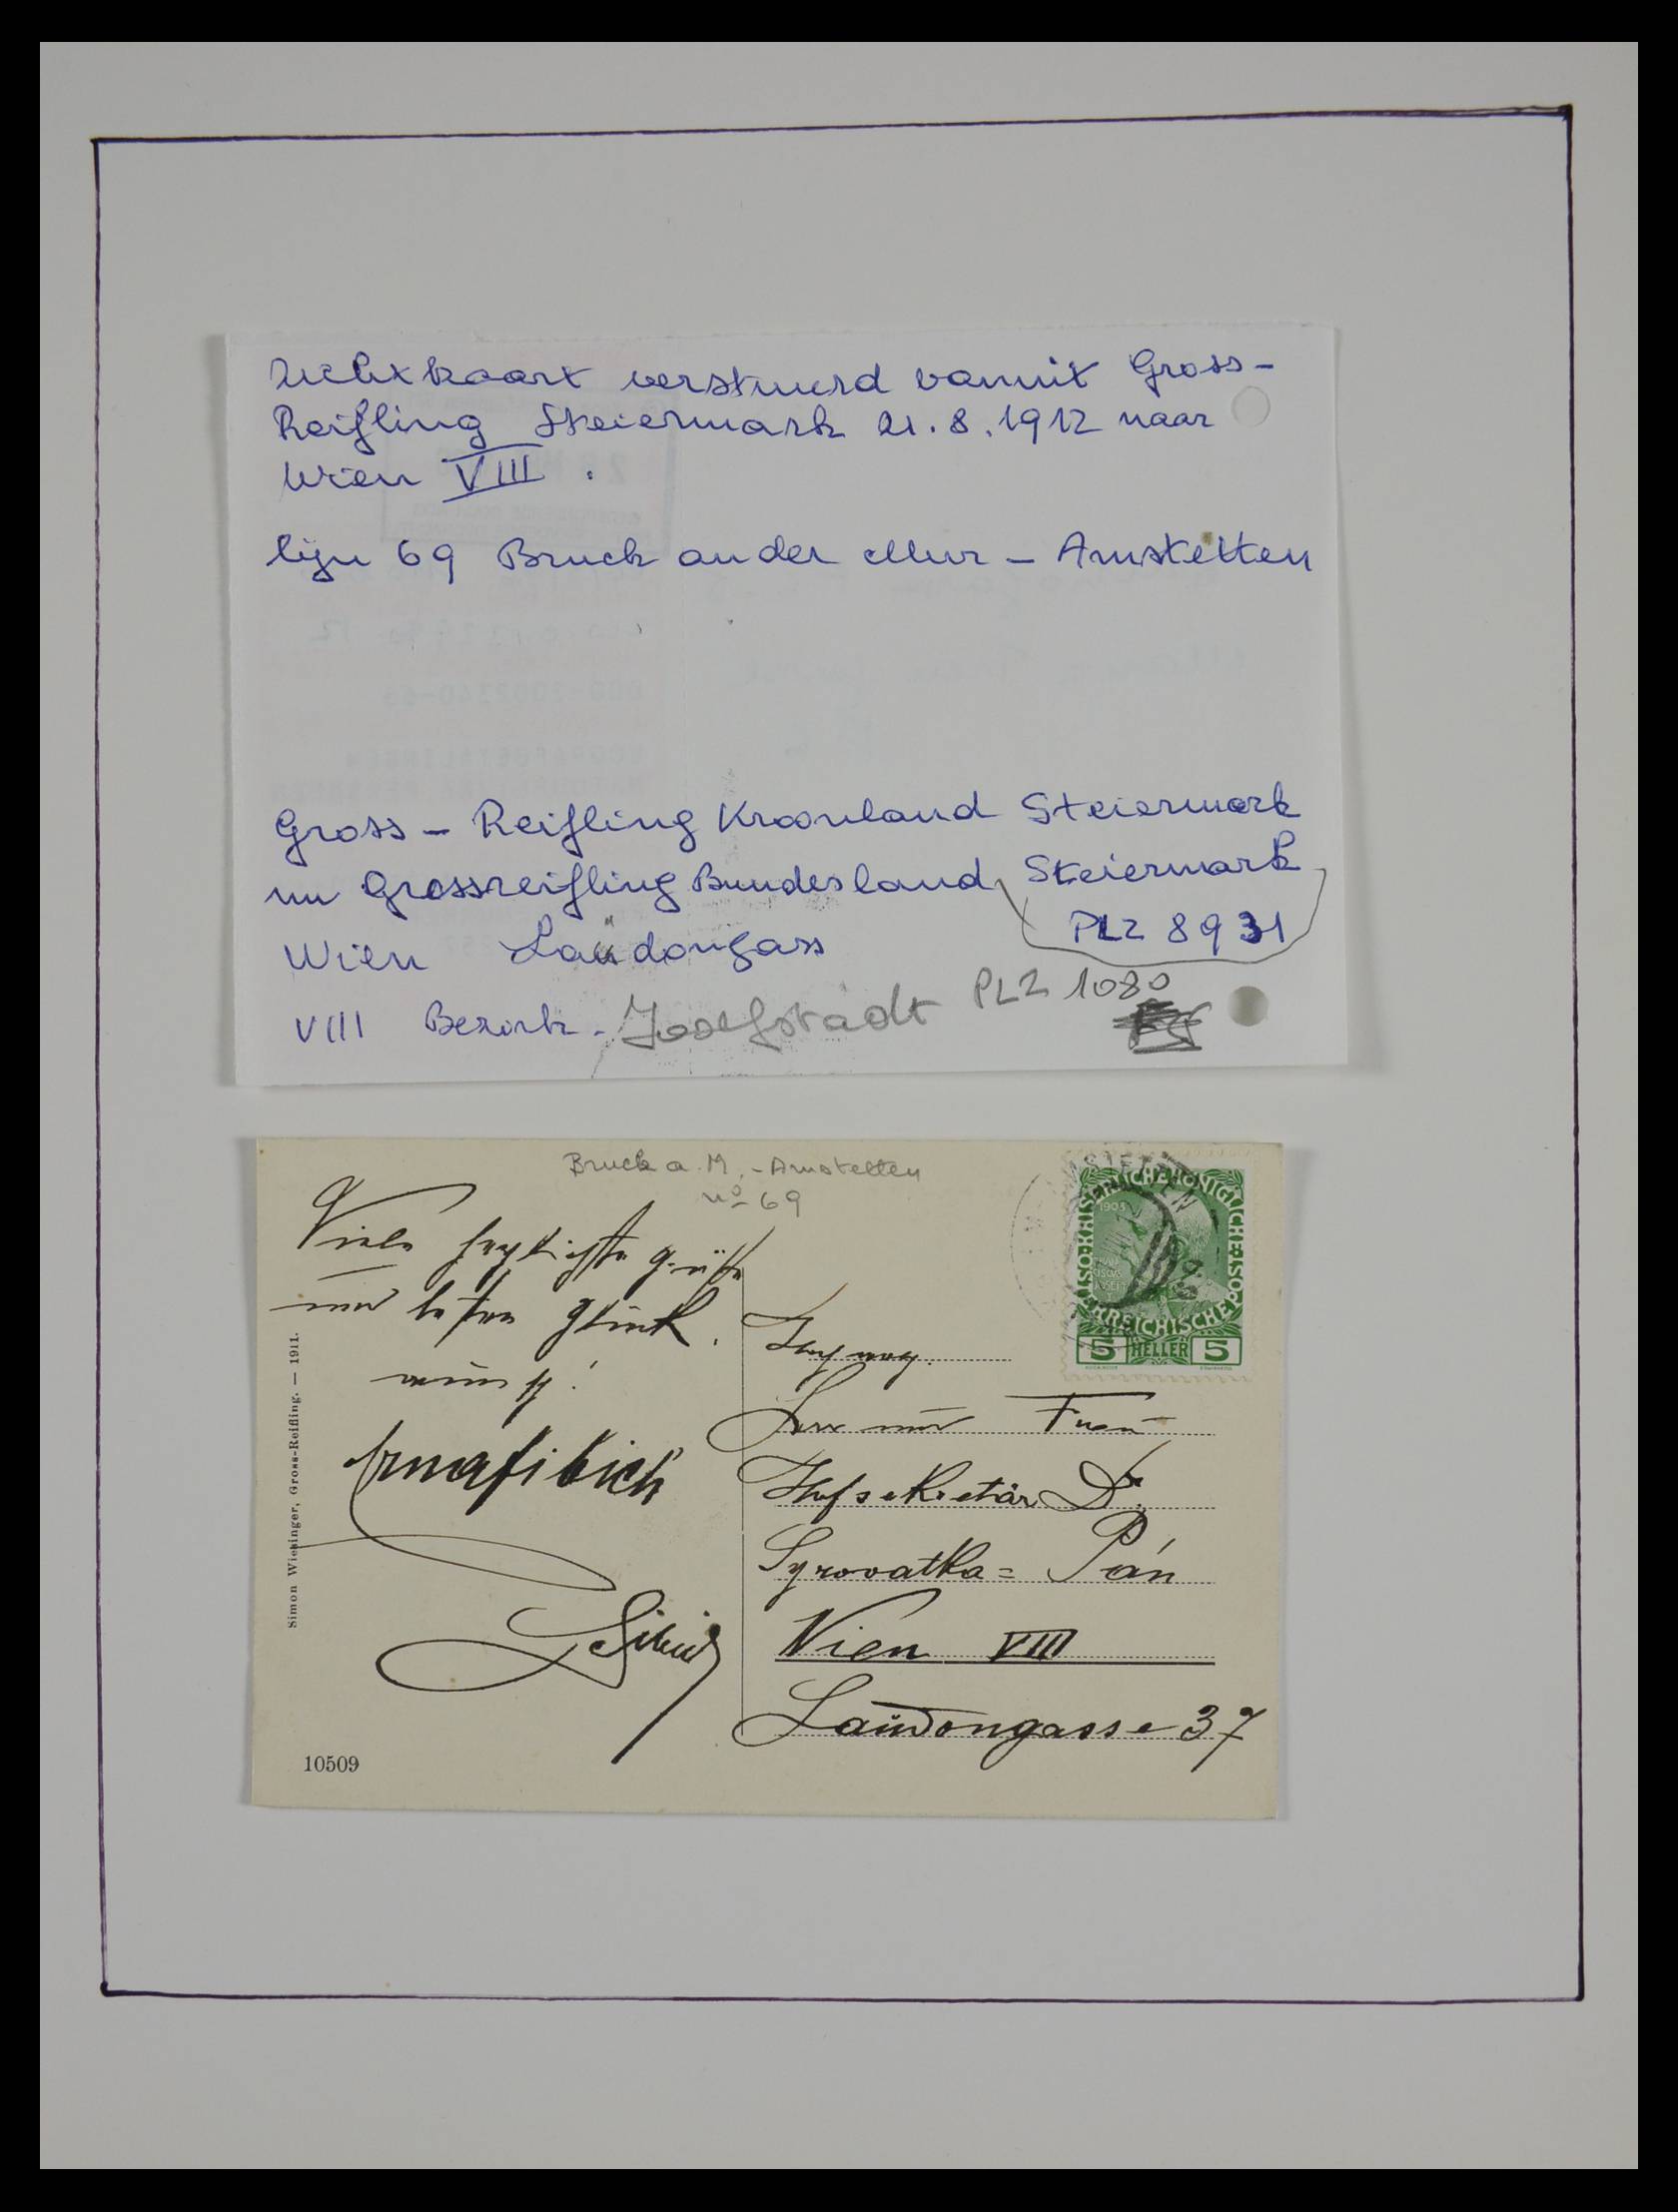 Zichtkaart verstuurd vanuit Gross-
Reifling Steiermark 21.8.1912 naar
Wien VIII.
lijn 69 Bruck an der Mur – Amstetten
Gross – Reifling Kroonland Steiermark
nu Grossreifling Bundesland Steiermark
PLZ 8931
Wien Laudongass
VIII Bezirk - Josefstadt PLZ 1080
Bruck a. M. - Amstetten
no 69
Viele herzlichste Grüße
und besten Glück
Irma Fibich
Fibich
Simon Wieninger, Gross-Reifling. — 1911.
10509
KAISERLICHE KÖNIGLICHE
ÖSTERREICHISCHE POST
1908
5 HELLER 5
AMSTETTEN
69
Herr und Frau
Hofsekretär Dr.
Syrovatka = Pán
Wien VIII
Laudongasse 37